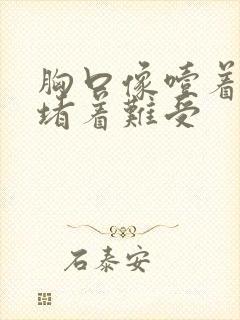 胸口像噎着
堵着難受
石泰安